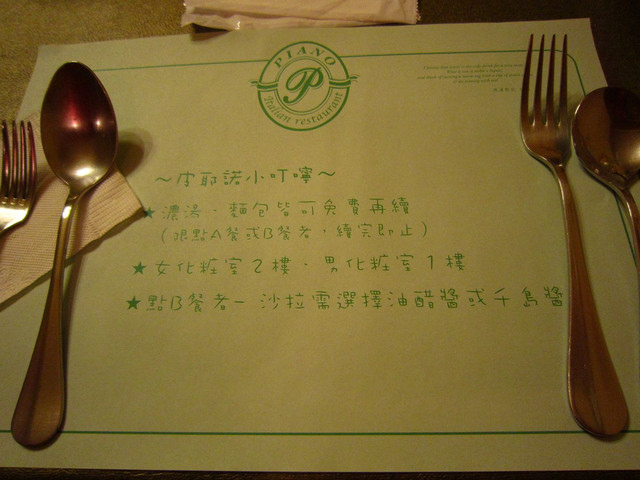 PIANO
P
Italian restaurant
～皮耶諾小叮嚀～
★濃湯、麵包皆可免費再續
(限點A餐或B餐者，續完即止)
★女化粧室2樓、男化粧室1樓
★點B餐者－沙拉需選擇油醋醬或千島醬